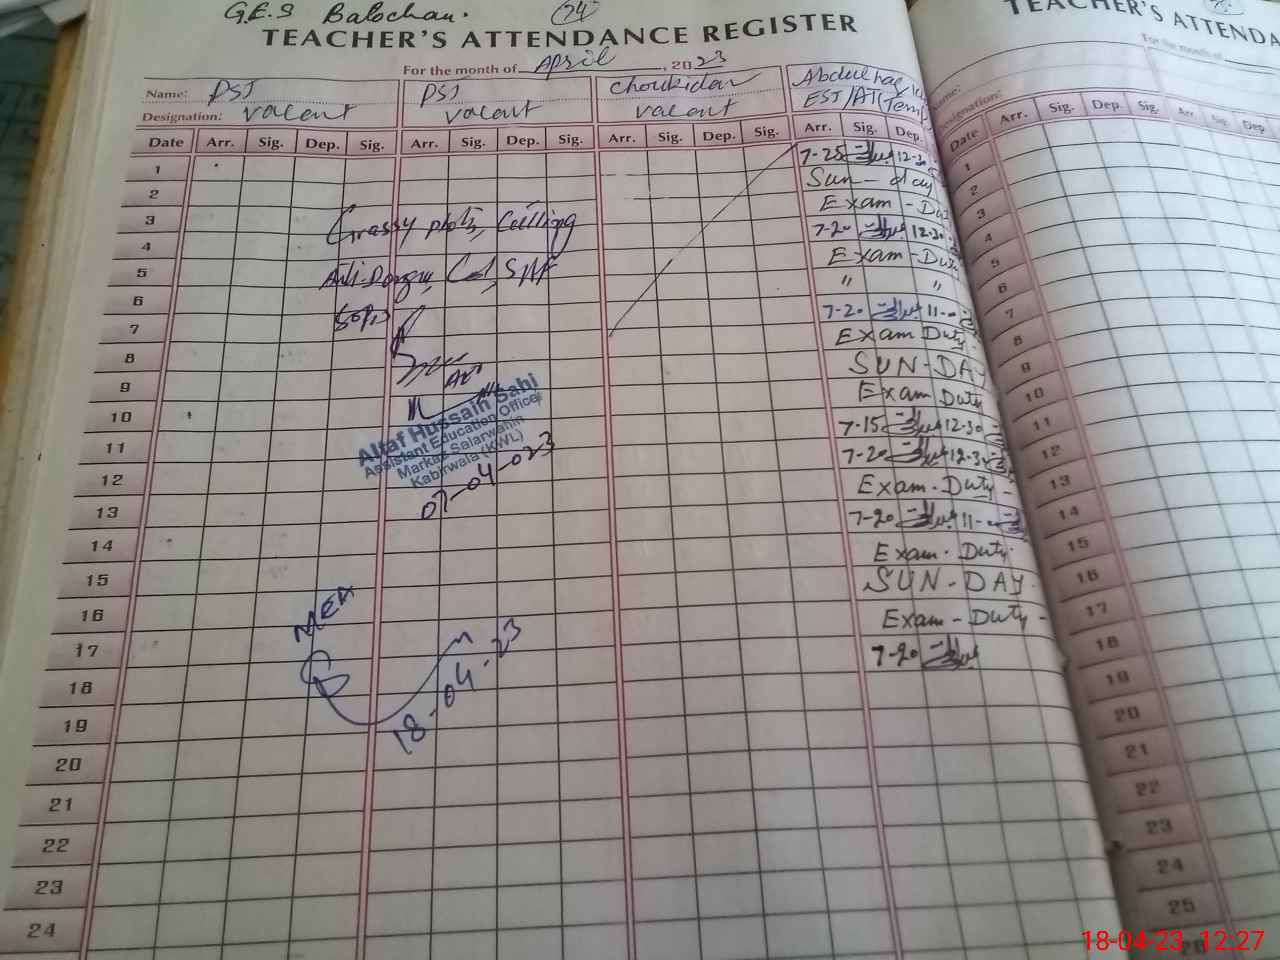 G.E.S Balochan.
74
TEACHER'S ATTENDANCE REGISTER
For the month of April, 2023
Name: PST PST choukidar Abdulhaq
Designation: vacant vacant vacant EST/AT(Tem
Date Arr. Sig. Dep. Sig. Arr. Sig. Dep. Sig. Arr. Sig. Dep. Sig. Arr. Sig. Dep.
1 7-25 12-30
2 Sun-day
3 Exam-Du
4 7-20 12-30
5 Exam-Duty
6 " "
7 7-20 11-00
8 Exam Duty
9 SUN-DAY
10 Exam Duty
11 7-15 12-30
12 7-20 12-3
13 Exam-Duty-
14 7-20 11-00
15 Exam. Duty.
16 SUN-DAY
17 Exam-Duty-
18 7-20
19
20
21
22
23
24
Grassy plots, Ceilling
Anti-Dengue SNF
Altaf Hussain Sahi
Assistant Education Officer
Markaz Salarwahin
Kabirwala (KWL)
07-04-023
MEA
18-04-23
TEACHER'S ATTENDA
For the month of
Name:
Designation:
Date Arr. Sig. Dep. Sig. Arr. Sig. Dep
1
2
3
4
5
6
7
8
9
10
11
12
13
14
15
16
17
18
19
20
21
22
23
24
25
26
18-04-23 12:27